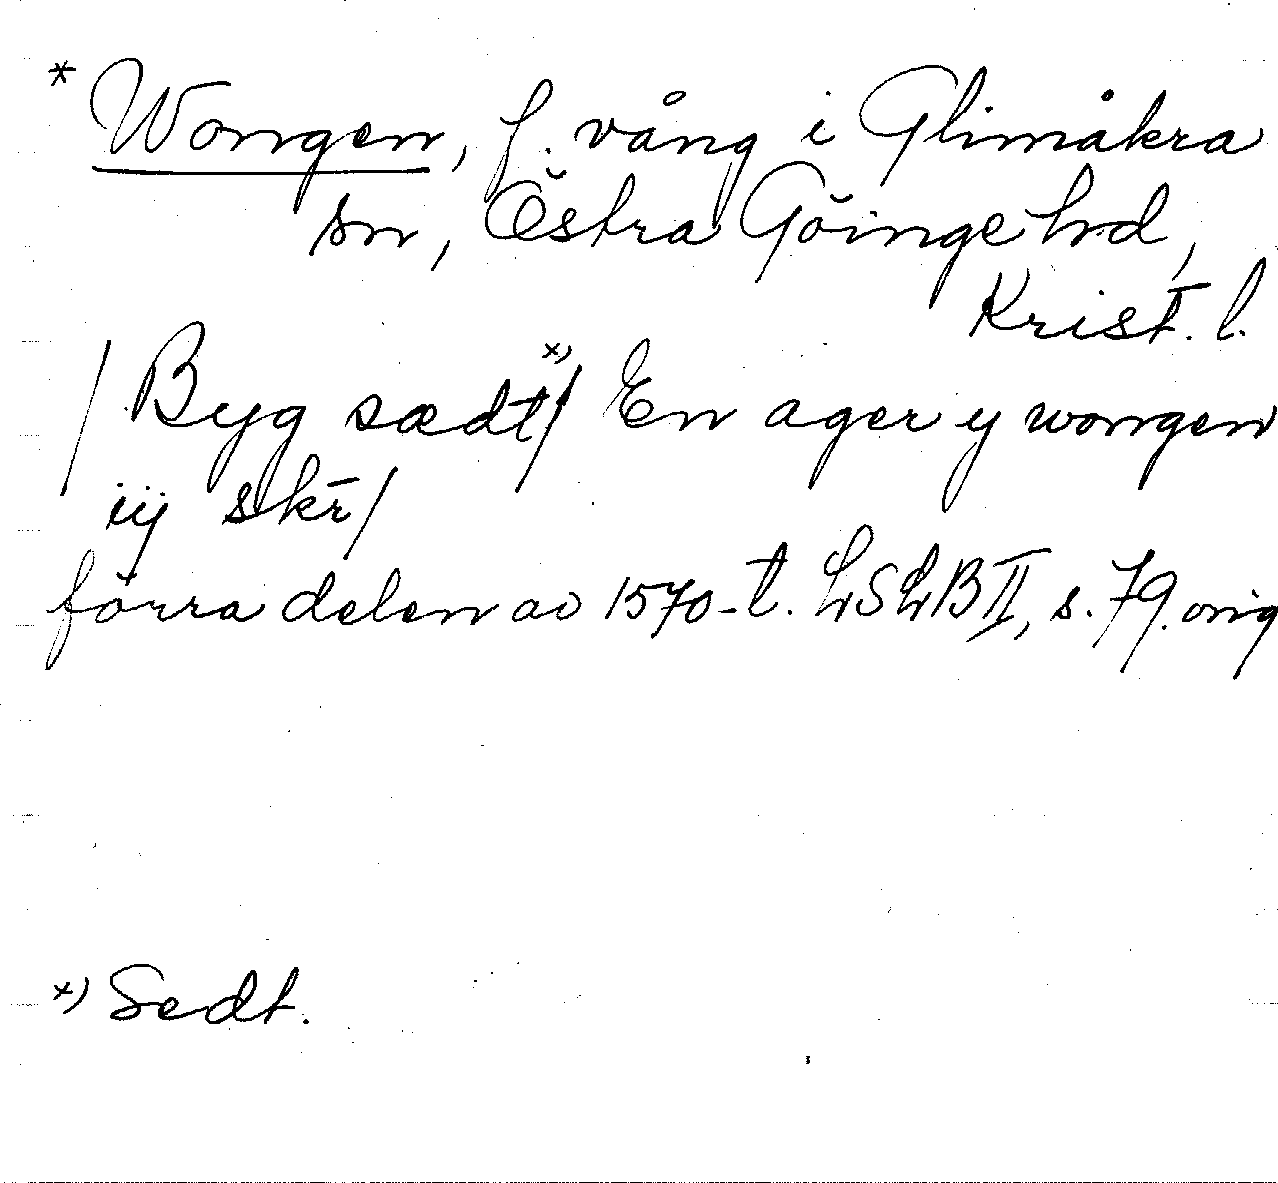 * Wongen, f. vång i Glimåkra
sn, Östra Göinge hrd,
Krist. l.
/ Byg sædt x) / En ager y wongen
iij skr̄ /
förra delen av 1570-t. LSLB II, s. 79. orig
x) Sedt.